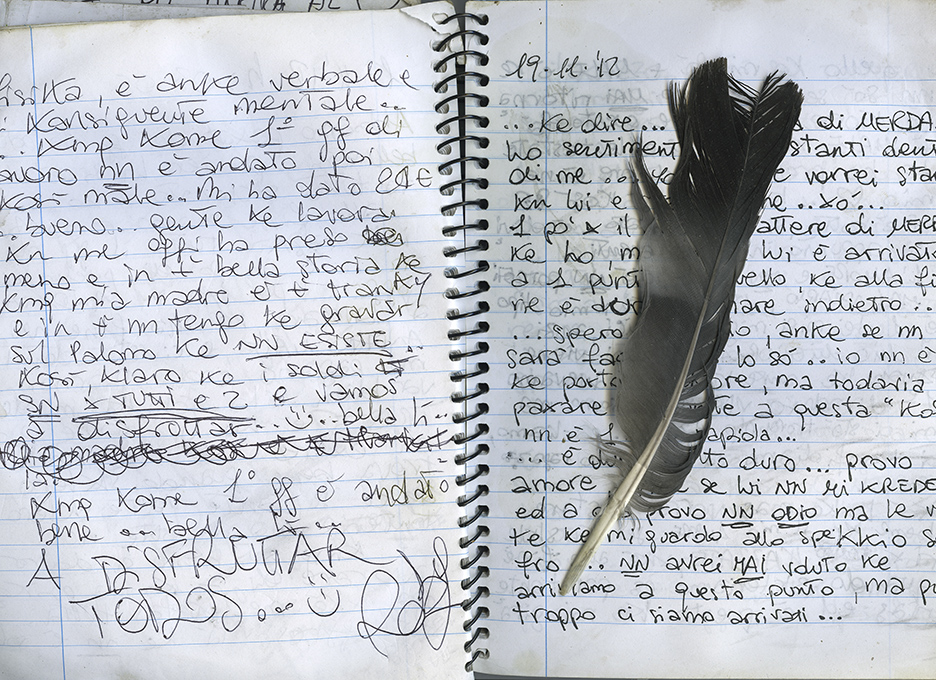 è anke verbale e
Konsiguente mentale...
... Kmp Kome 1° gg di
lavoro nn è andato poi
Kosì male... mi ha dato 20€
.. bueno.. gente ke lavora
Kn me oggi ha preso
meno e, in + bella storia ke
Kmp mia madre ei + trankY
e in + nn tengo ke gravar
sul Palono ke NN ESISTE ...
Kosì, klaro ke i soldi
x TUTTI e 2 e vamos
a disfrottar... :) .. bella k...
Kmp Kome 1° gg è andato
bene ... bella
A DISFRUTAR
TODOS... :)
19.11.'12
...Ke dire... di MERDA
ho sentiment stanti dent
di me... e vorrei sta
Kn lui e ne ..xò...
1 pò x il attere di MERD
Ke ho m lui è arrivat
a 1 punt vello ke alla fi
ne è do are indietro...
...spero io, anke se nn
sarà fa lo sò.. io nn è
ke porto ore, ma todaria
paxare e a questa "Kos
nn è 1 apiola...
.... è du to duro... provo
amore se lui NN MI KREDE
ed a provo NN ODIO ma le v
te ke mi guardo allo spekkio s
fro ... NN avrei MAI voluto ke
arriviamo a questo punto, ma pu
troppo ci siamo arrivati...